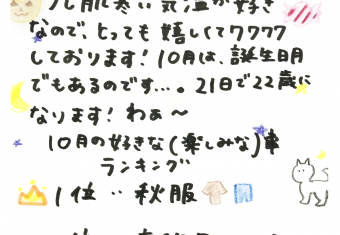 少し肌寒い気温が好き
なので、とっても嬉しくてワクワク
しております！10月は、誕生日月
でもあるのです…。21日で22歳に
なります！わぁ〜
10月の好きな(楽しみな)事
ランキング
1位‥秋服